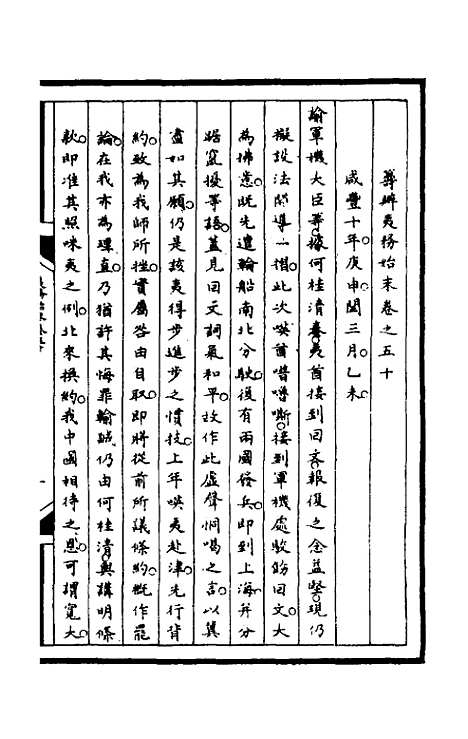 籌辦夷務始末卷之五十
咸豐十年庚申閏三月乙未
諭軍機大臣等據何桂清奏夷酋接到回文報復之念益堅現仍
擬設法開導一摺此次㗸酋噜嘶接到軍機處駮飭回文大
為拂意既先遣輪船南北分駛復有兩國發兵即到上海并分
踞竄擾等語蓋見回文詞氣和平故作此虛聲恫喝之言以冀
盡如其願仍是該夷得步進步之慣技上年㗸夷赴津先行背
約致為我師所挫實屬咎由自取即將從前所議條約概作罷
論在我亦為理直乃猶許其悔罪輸誠仍由何桂清與講明條
款即准其照咪夷之例北來換約我中國相待之恩可謂寬大